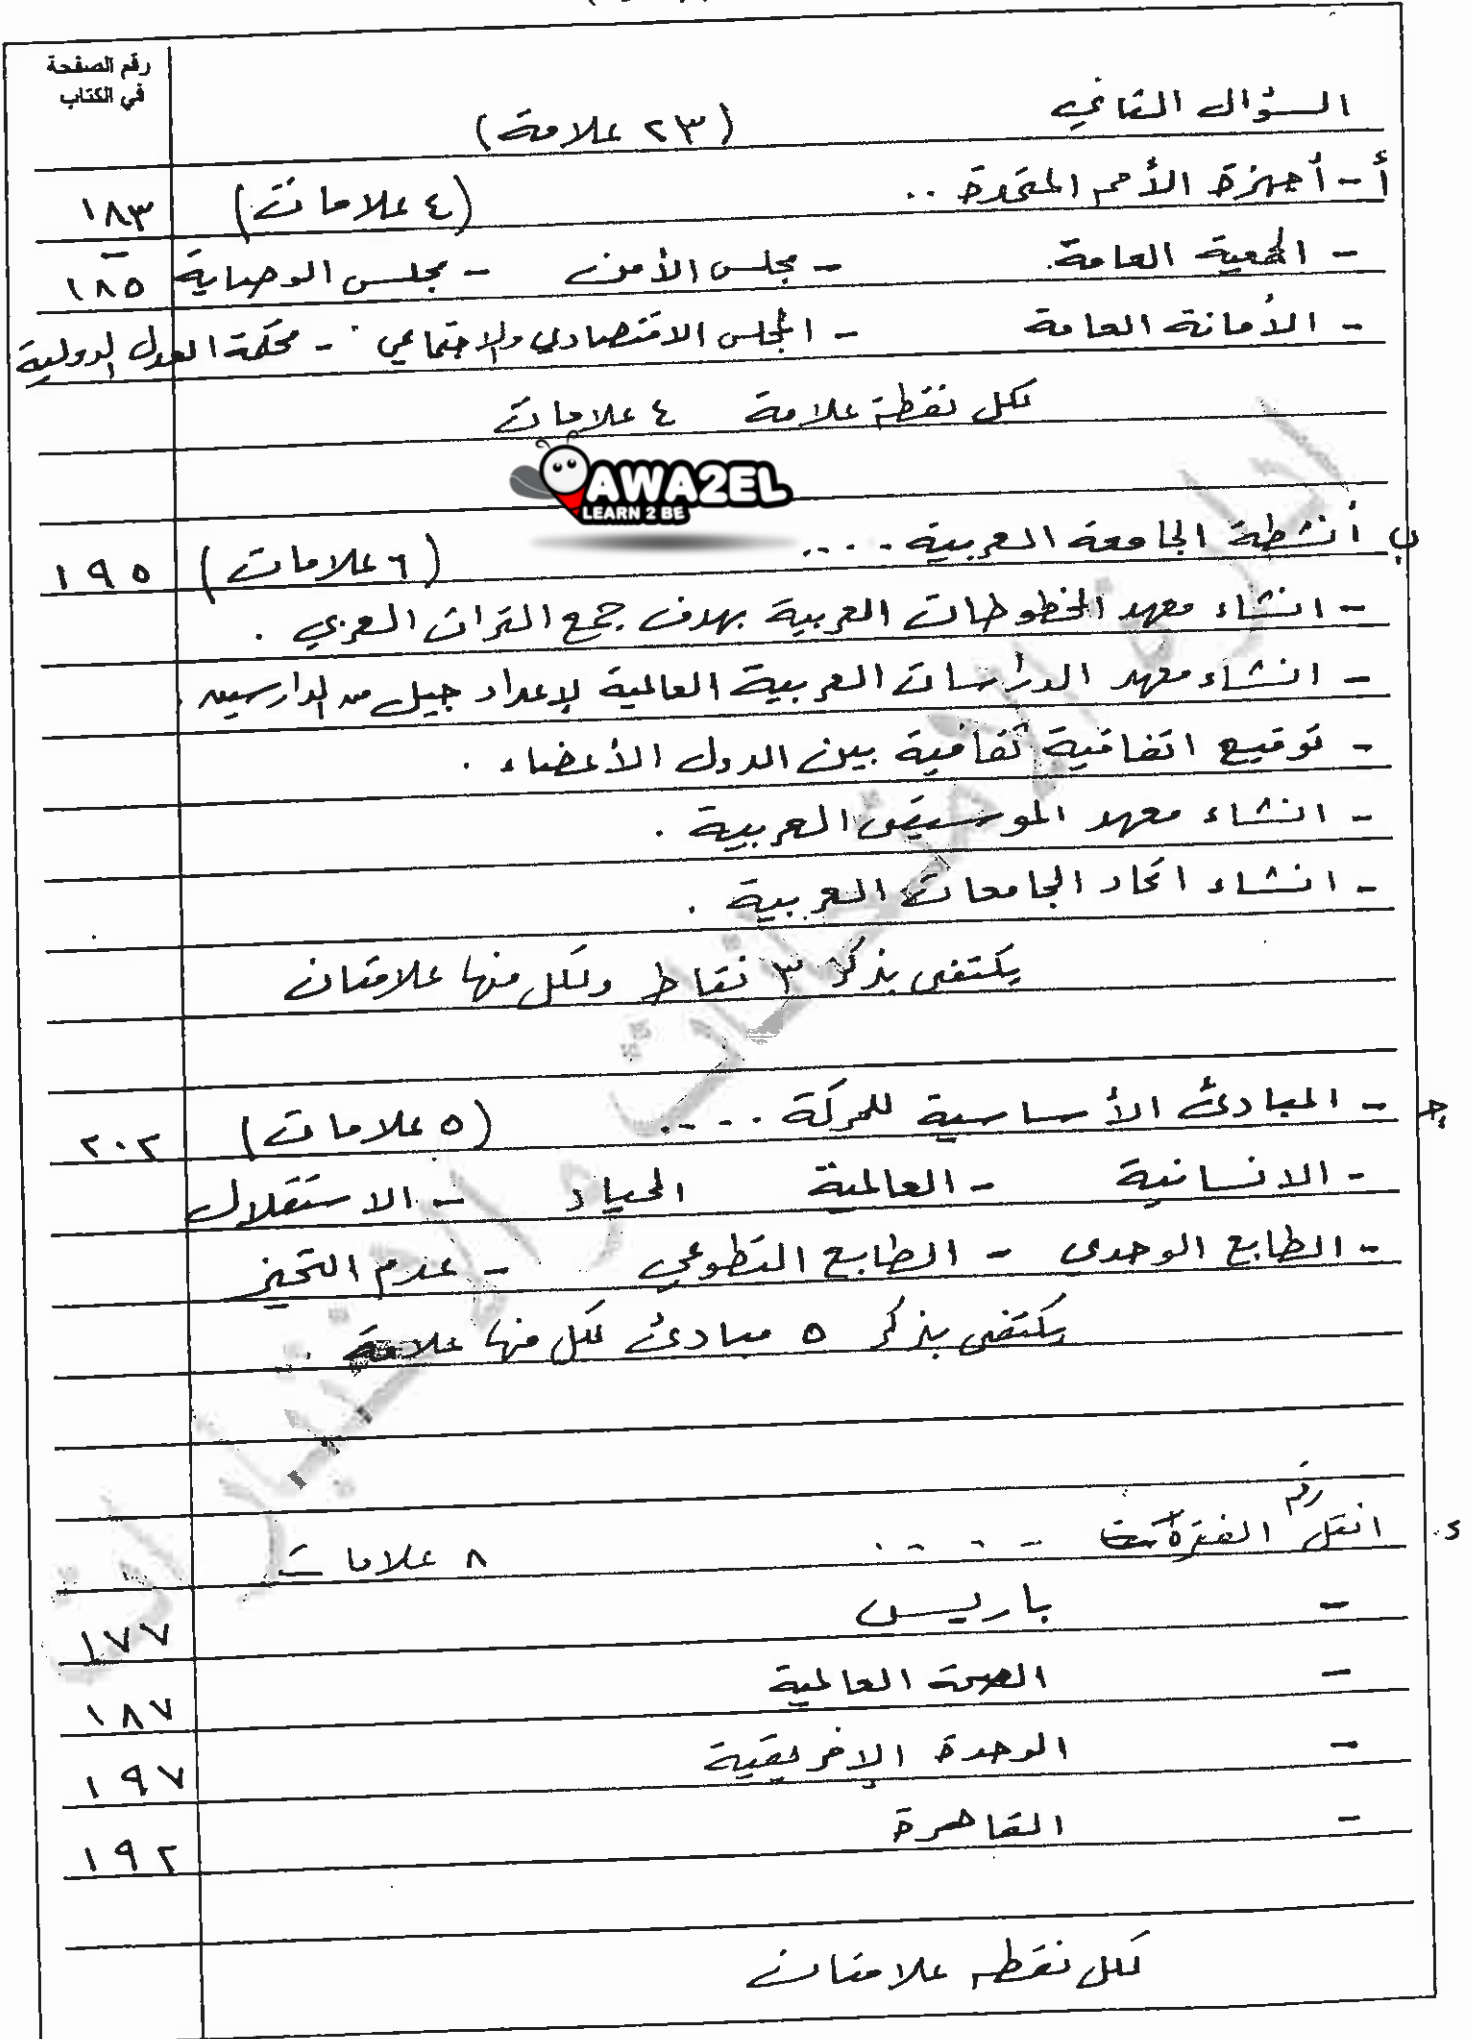 رقم الصفحة
في الكتاب
السؤال الثاني (٢٣ علامة)
أ - أجهزة الأمم المتحدة .. (٤ علامات) ١٨٣
- الجمعية العامة. - مجلس الأمن - مجلس الوصاية - ١٨٥
- الأمانة العامة - المجلس الاقتصادي والاجتماعي - محكمة العدل الدولية
لكل نقطة علامة ٤ علامات
AWA2EL
LEARN 2 BE
ب أنشطة الجامعة العربية .... (٦ علامات) ١٩٥
- انشاء معهد المخطوطات العربية بهدف جمع التراث العربي .
- انشاء معهد الدراسات العربية العالمية لإعداد جيل من الدارسين .
- توقيع اتفاقية ثقافية بين الدول الأعضاء .
- انشاء معهد الموسيقى العربية .
- انشاء اتحاد الجامعات العربية .
يكتفى بذكر ٣ نقاط ولكل منها علامتان
جـ - المبادئ الأساسية للحركة .... (٥ علامات) ٢٠٢
- الانسانية - العالمية الحياد - الاستقلال
- الطابع الوحدي - الطابع التطوعي - عدم التحيز
يكتفى بذكر ٥ مبادئ لكل منها علامة .
د. انقل رقم الفقرة .... ٨ علامات
- باريس ١٧٧
- الصحة العالمية ١٨٧
- الوحدة الإفريقية ١٩٧
- القاهرة ١٩٢
لكل نقطه علامتان